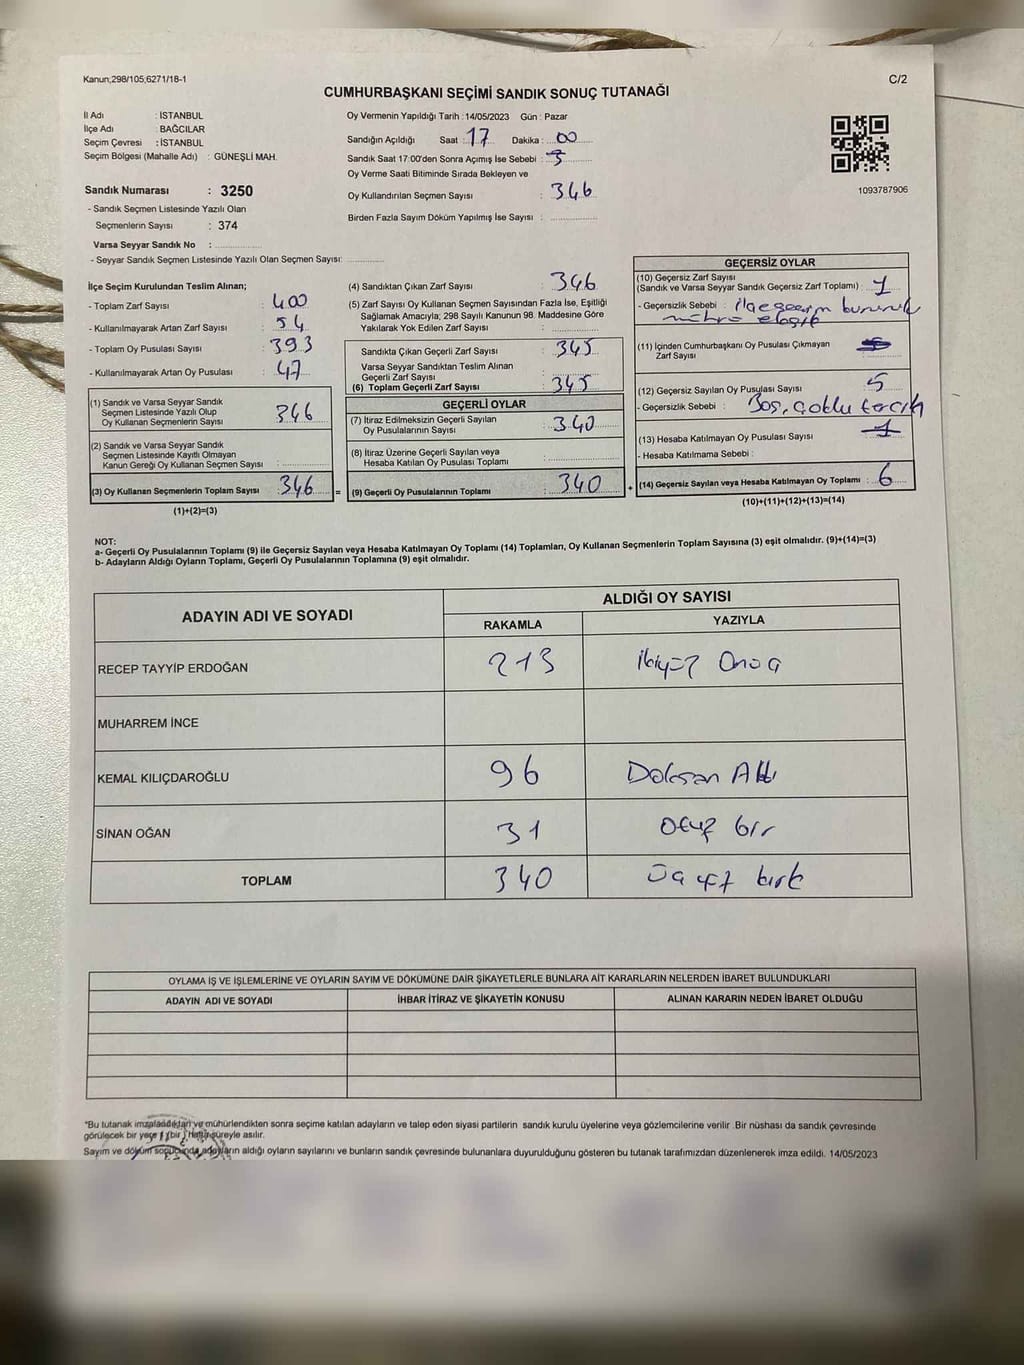 Kanun;298/105;6271/18-1
C/2
CUMHURBAŞKANI SEÇİMİ SANDIK SONUÇ TUTANAĞI
İl Adı : İSTANBUL
İlçe Adı : BAĞCILAR
Seçim Çevresi : İSTANBUL
Seçim Bölgesi (Mahalle Adı) : GÜNEŞLİ MAH.
Sandık Numarası : 3250
- Sandık Seçmen Listesinde Yazılı Olan
Seçmenlerin Sayısı : 374
Varsa Seyyar Sandık No :
- Seyyar Sandık Seçmen Listesinde Yazılı Olan Seçmen Sayısı:
Oy Vermenin Yapıldığı Tarih :14/05/2023 Gün : Pazar
Sandığın Açıldığı Saat : 17 Dakika : 00
Sandık Saat 17:00'den Sonra Açımış İse Sebebi :
Oy Verme Saati Bitiminde Sırada Bekleyen ve
Oy Kullandırılan Seçmen Sayısı : 346
Birden Fazla Sayım Döküm Yapılmış İse Sayısı :
1093787906
İlçe Seçim Kurulundan Teslim Alınan;
- Toplam Zarf Sayısı : 400
- Kullanılmayarak Artan Zarf Sayısı : 54
- Toplam Oy Pusulası Sayısı : 393
- Kullanılmayarak Artan Oy Pusulası : 47
(1) Sandık ve Varsa Seyyar Sandık
Seçmen Listesinde Yazılı Olup
Oy Kullanan Seçmenlerin Sayısı : 346
(2) Sandık ve Varsa Seyyar Sandık
Seçmen Listesinde Kayıtlı Olmayan
Kanun Gereği Oy Kullanan Seçmen Sayısı :
(3) Oy Kullanan Seçmenlerin Toplam Sayısı : 346
(1)+(2)=(3)
(4) Sandıktan Çıkan Zarf Sayısı : 346
(5) Zarf Sayısı Oy Kullanan Seçmen Sayısından Fazla İse, Eşitliği
Sağlamak Amacıyla; 298 Sayılı Kanunun 98. Maddesine Göre
Yakılarak Yok Edilen Zarf Sayısı :
Sandıkta Çıkan Geçerli Zarf Sayısı : 345
Varsa Seyyar Sandıktan Teslim Alınan
Geçerli Zarf Sayısı :
(6) Toplam Geçerli Zarf Sayısı : 345
GEÇERLİ OYLAR
(7) İtiraz Edilmeksizin Geçerli Sayılan
Oy Pusulalarının Sayısı : 340
(8) İtiraz Üzerine Geçerli Sayılan veya
Hesaba Katılan Oy Pusulası Toplamı :
= (9) Geçerli Oy Pusulalarının Toplamı : 340
GEÇERSİZ OYLAR
(10) Geçersiz Zarf Sayısı
(Sandık ve Varsa Seyyar Sandık Geçersiz Zarf Toplamı) : 1
- Geçersizlik Sebebi :
(11) İçinden Cumhurbaşkanı Oy Pusulası Çıkmayan
Zarf Sayısı
(12) Geçersiz Sayılan Oy Pusulası Sayısı : 5
- Geçersizlik Sebebi : Boş, çoklu tercih
(13) Hesaba Katılmayan Oy Pusulası Sayısı : 1
- Hesaba Katılmama Sebebi :
+ (14) Geçersiz Sayılan veya Hesaba Katılmayan Oy Toplamı : 6
(10)+(11)+(12)+(13)=(14)
NOT:
a- Geçerli Oy Pusulalarının Toplamı (9) ile Geçersiz Sayılan veya Hesaba Katılmayan Oy Toplamı (14) Toplamları, Oy Kullanan Seçmenlerin Toplam Sayısına (3) eşit olmalıdır. (9)+(14)=(3)
b- Adayların Aldığı Oyların Toplamı, Geçerli Oy Pusulalarının Toplamına (9) eşit olmalıdır.
ADAYIN ADI VE SOYADI
ALDIĞI OY SAYISI
RAKAMLA YAZIYLA
RECEP TAYYİP ERDOĞAN 213 ikiyüz Onüç
MUHARREM İNCE
KEMAL KILIÇDAROĞLU 96 Doksan Altı
SİNAN OĞAN 31 Otuz bir
TOPLAM 340 üçyüz kırk
OYLAMA İŞ VE İŞLEMLERİNE VE OYLARIN SAYIM VE DÖKÜMÜNE DAİR ŞİKAYETLERLE BUNLARA AİT KARARLARIN NELERDEN İBARET BULUNDUKLARI
ADAYIN ADI VE SOYADI İHBAR İTİRAZ VE ŞİKAYETİN KONUSU ALINAN KARARIN NEDEN İBARET OLDUĞU
"Bu tutanak imzalandıktan ve mühürlendikten sonra seçime katılan adayların ve talep eden siyasi partilerin sandık kurulu üyelerine veya gözlemcilerine verilir .Bir nüshası da sandık çevresinde
görülecek bir yere 1 (bir) Hafta süreyle asılır.
Sayım ve döküm sonucunda adayların aldığı oyların sayılarını ve bunların sandık çevresinde bulunanlara duyurulduğunu gösteren bu tutanak tarafımızdan düzenlenerek imza edildi. 14/05/2023